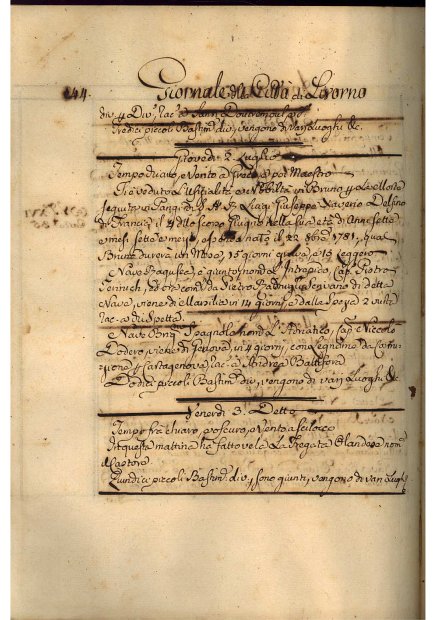 244. Giornale della Città di Livorno
div. 4 Div. rac. a Sann
Tredici piccoli Bastim. div. vengono di varj Luoghi &c.
Giovedi 2 Luglio
Tempo chiaro, e Vento a Greco e poi Maestro
Si è veduto l'Ufitialità e Nobiltà in Bruno p. La Morte
seguita in Parigi di S. A. R. Luigi Giuseppe Xaverio Delfino
di Francia, il 4 dello scorso Giugno nella sua età di Anni sette
e mesi sette e mezzo, essendo nato il 22 8bre 1781, qual
Bruno durerà un Mese, 15 giorni grave, e 15 Leggero
Nave Ragusea, è giunto nom. L'Intrepido, Cap. Pietro
Scrivano di detta
Nave, viene di Marsilia in 14 giorni, e dalla Spezie 2 vuota
rac. a di Spetta
Nave Brig. Spagnolo nom. L'Adriatico, Cap. Niccolo
Dodero, viene di Genova, in 4 giorni, con Legname da Costru-
zione p. Cartagenova, rac. a Andrea Balletora
Dodici piccoli Bastim. div. vengono di varj Luoghi &c
Venerdi 3. Detto
Tempo frà chiaro, e oscuro, e Vento a Scilocco
In questa mattina ha fatto vela La Fregata Olandese nom.
Castore
Quindici piccoli Bastim. div. sono giunti, vengono di varj Luoghi